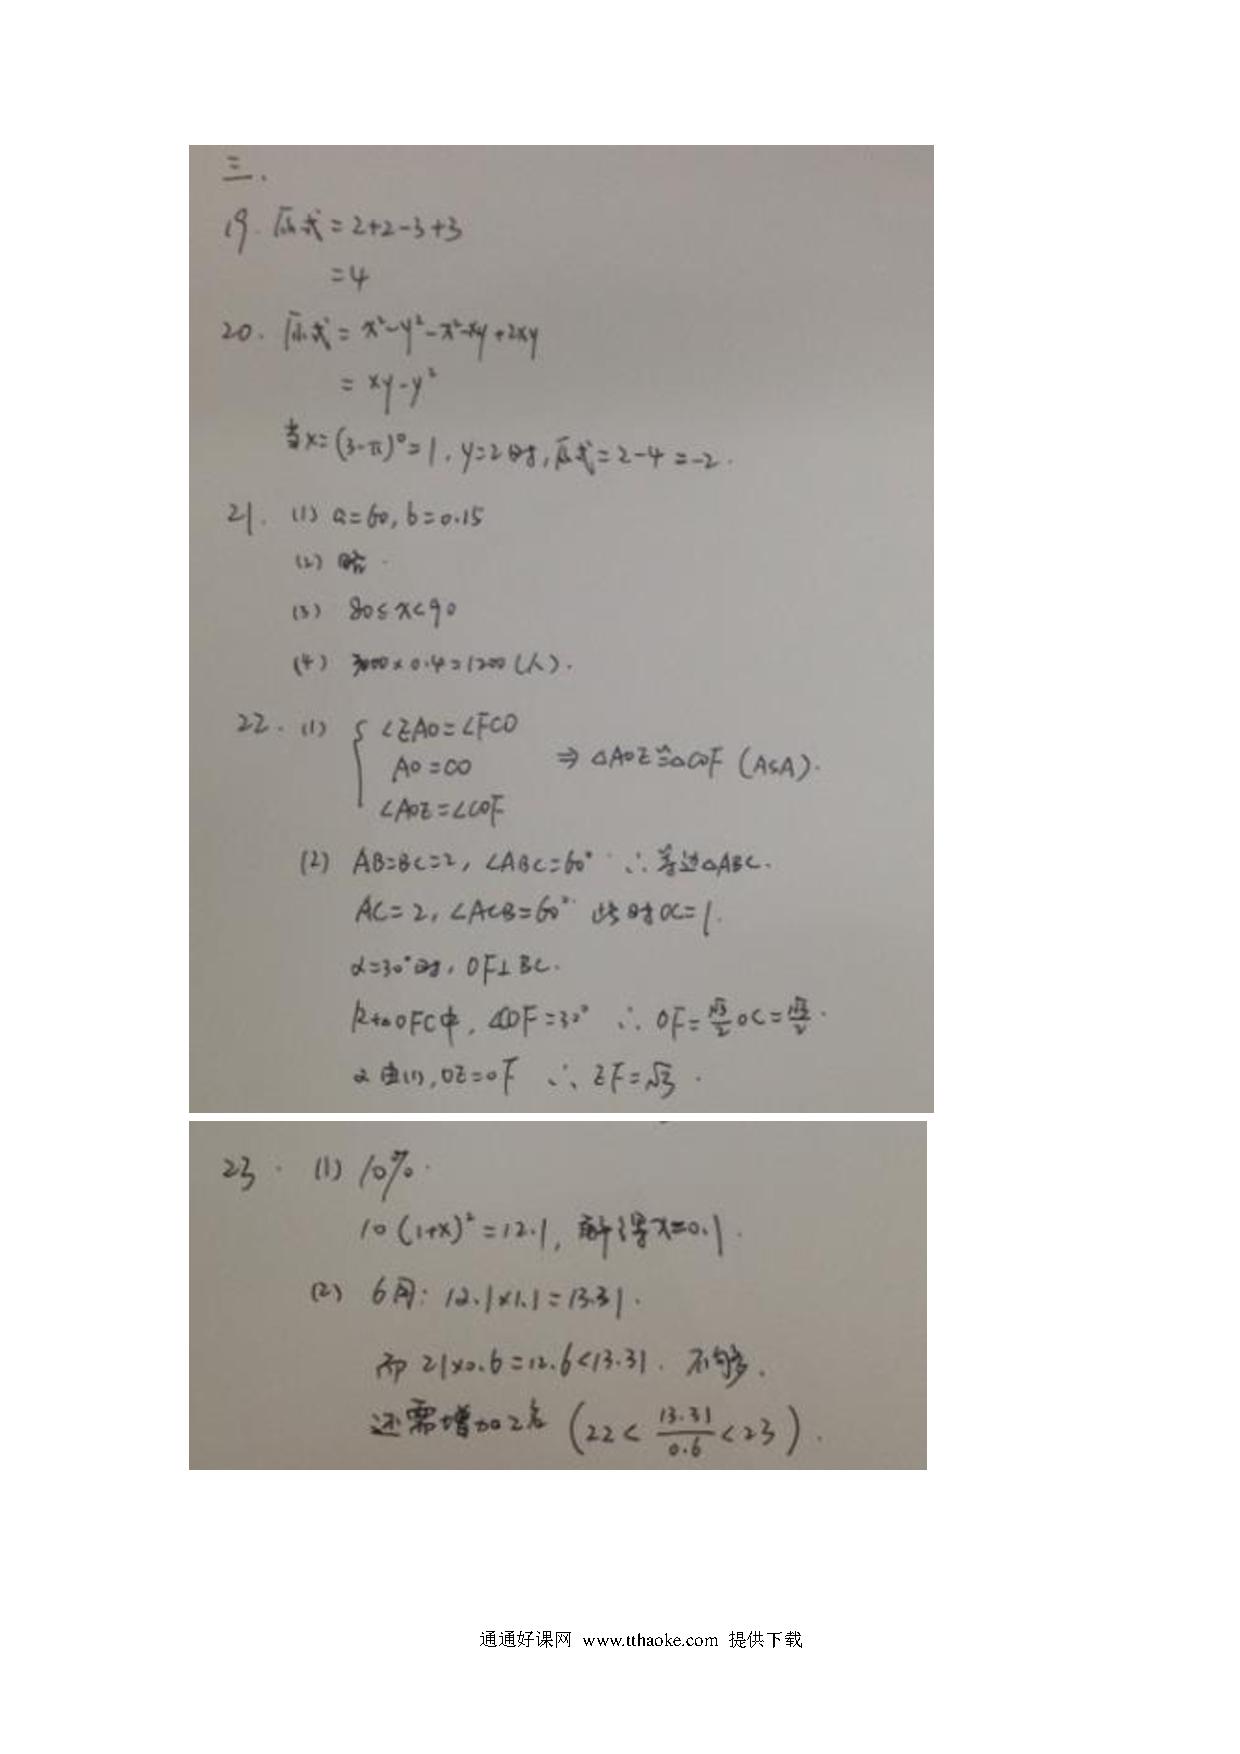 三.
19. 原式=2+2-3+3
=4
20. 原式=x²-y²-x²-xy+2xy
=xy-y²
当x=(3-π)⁰=1, y=2时, 原式=2-4=-2.
21. (1) a=60, b=0.15
(2) 略.
(3) 80≤x<90
(4) 3000×0.4=1200(人).
22. (1) { ∠EAO=∠FCO
AO=CO ⇒ △AOE≌△COF (ASA).
∠AOE=∠COF
(2) AB=BC=2, ∠ABC=60° ∴等边△ABC.
AC=2, ∠ACB=60° 此时OC=1.
α=30°时, OF⊥BC.
Rt△OFC中, ∠COF=30° ∴ OF=√3/2 OC=√3/2.
又由(1), OE=OF ∴ EF=√3.
23. (1) 10%.
10(1+x)²=12.1, 解得x=0.1.
(2) 6月: 12.1×1.1=13.31.
而 21×0.6=12.6<13.31. 不够.
还需增加2名 (22<13.31/0.6<23).
通通好课网 www.tthaoke.com 提供下载